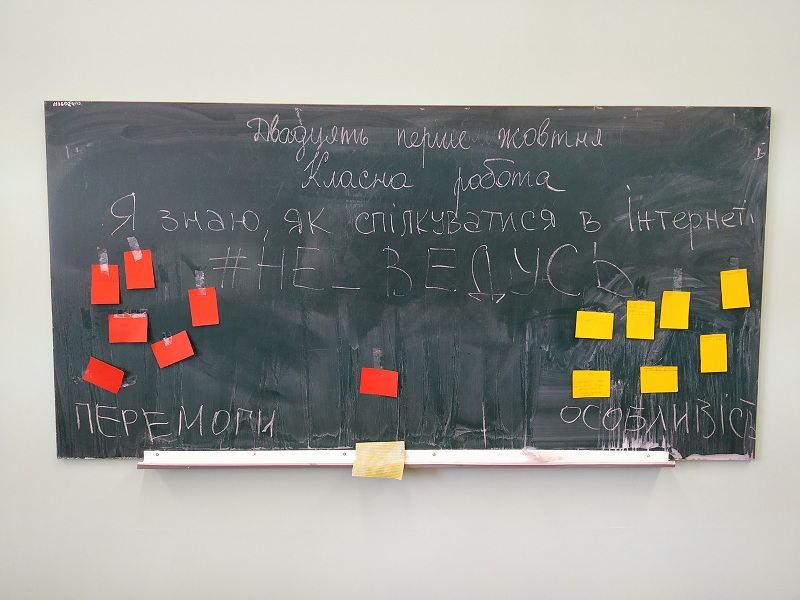 Двадцять перше жовтня
Класна робота
Я знаю, як спілкуватися в Інтернеті
#НЕ_ВЕДУСЬ
ПЕРЕМОГИ
ОСОБЛИВІСТ